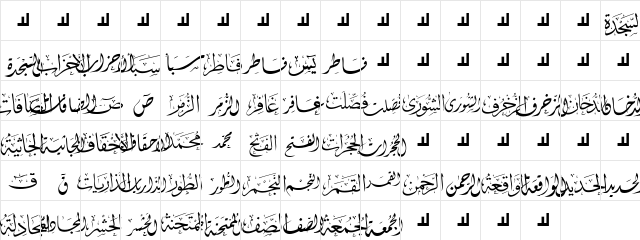 السجدة
فاطر يس فاطر فاطر سبا سبا الاحزاب الاحزاب السجدة
الدخان الدخان الزخرف الزخرف الشورى الشورى فصلت فصلت غافر غافر الزمر الزمر ص ص الصافات الصافات
الحجرات الحجرات الفتح الفتح محمد محمد الاحقاف الاحقاف الجاثية الجاثية
الحديد الحديد الواقعة الواقعة الرحمن الرحمن القمر القمر النجم النجم الطور الطور الذاريات الذاريات ق ق
الجمعة الجمعة الصف الصف الممتحنة الممتحنة الحشر الحشر المجادلة المجادلة